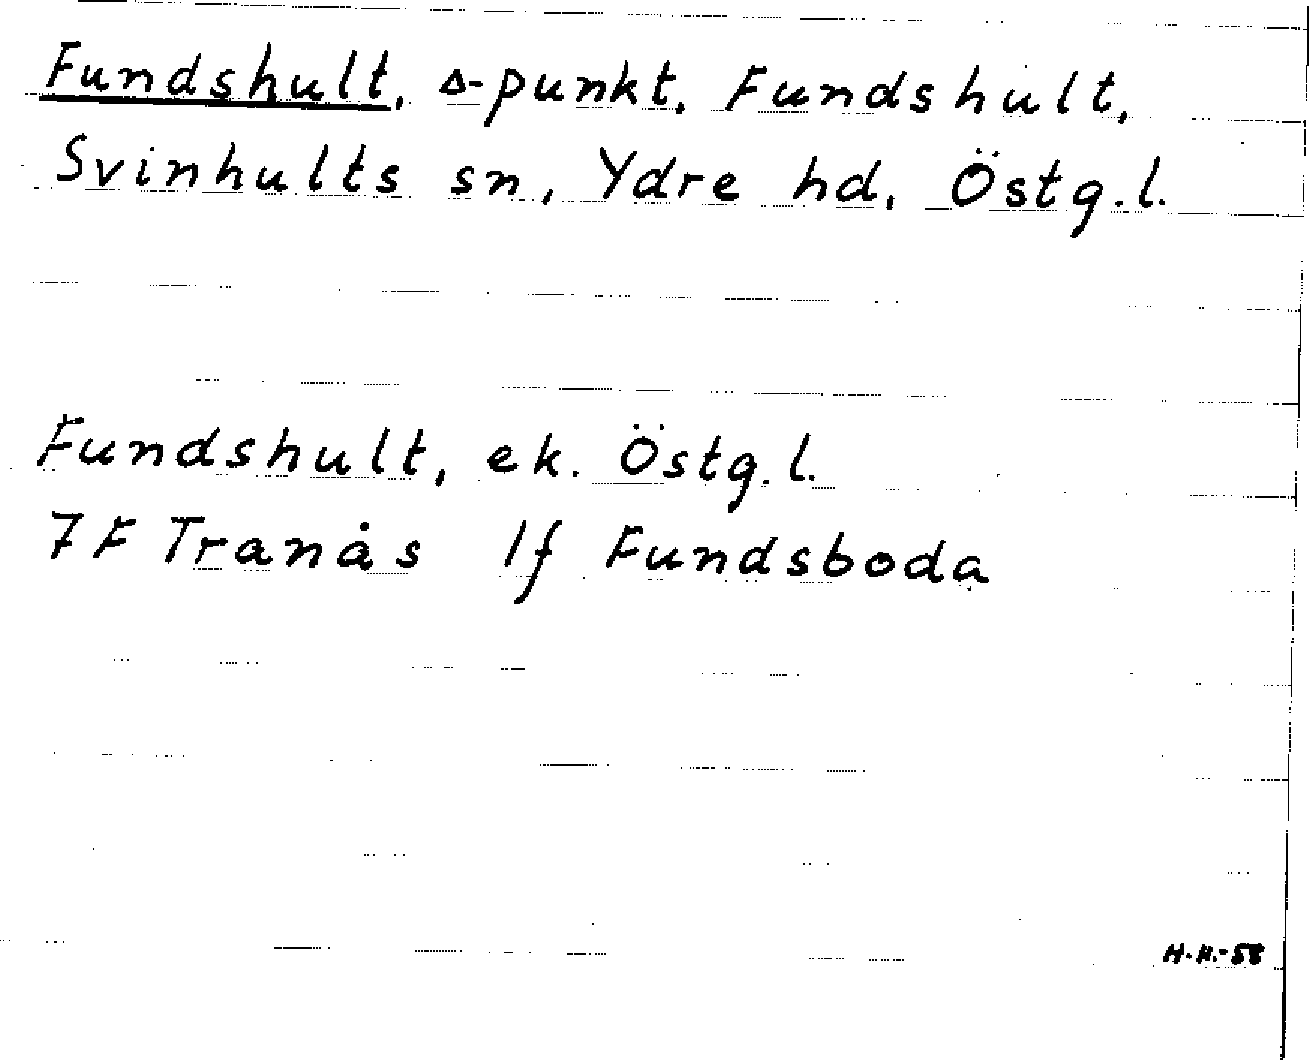 Fundshult, Δ-punkt, Fundshult,
Svinhults sn, Ydre hd, Östg.l.
Fundshult, ek. Östg.l.
7F Tranås 1f Fundsboda
H.H.-58